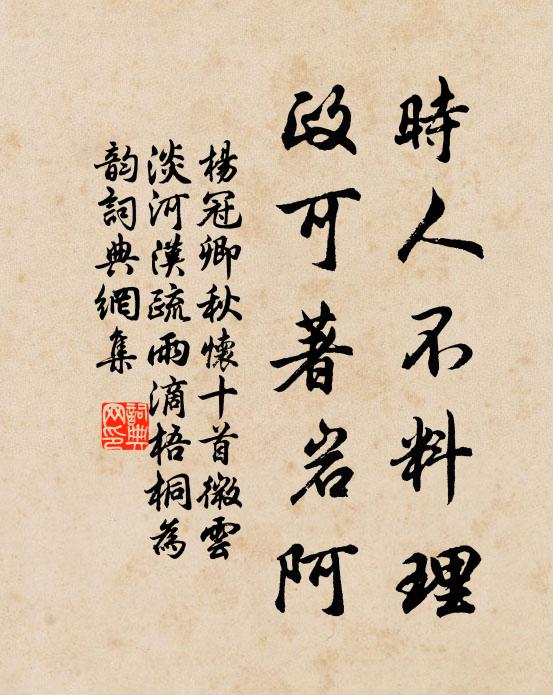 時人不料理
政可著岩阿
楊冠卿秋懷十首微雲
淡河漢疏雨滴梧桐為
韵詞典網集
詞典
网印